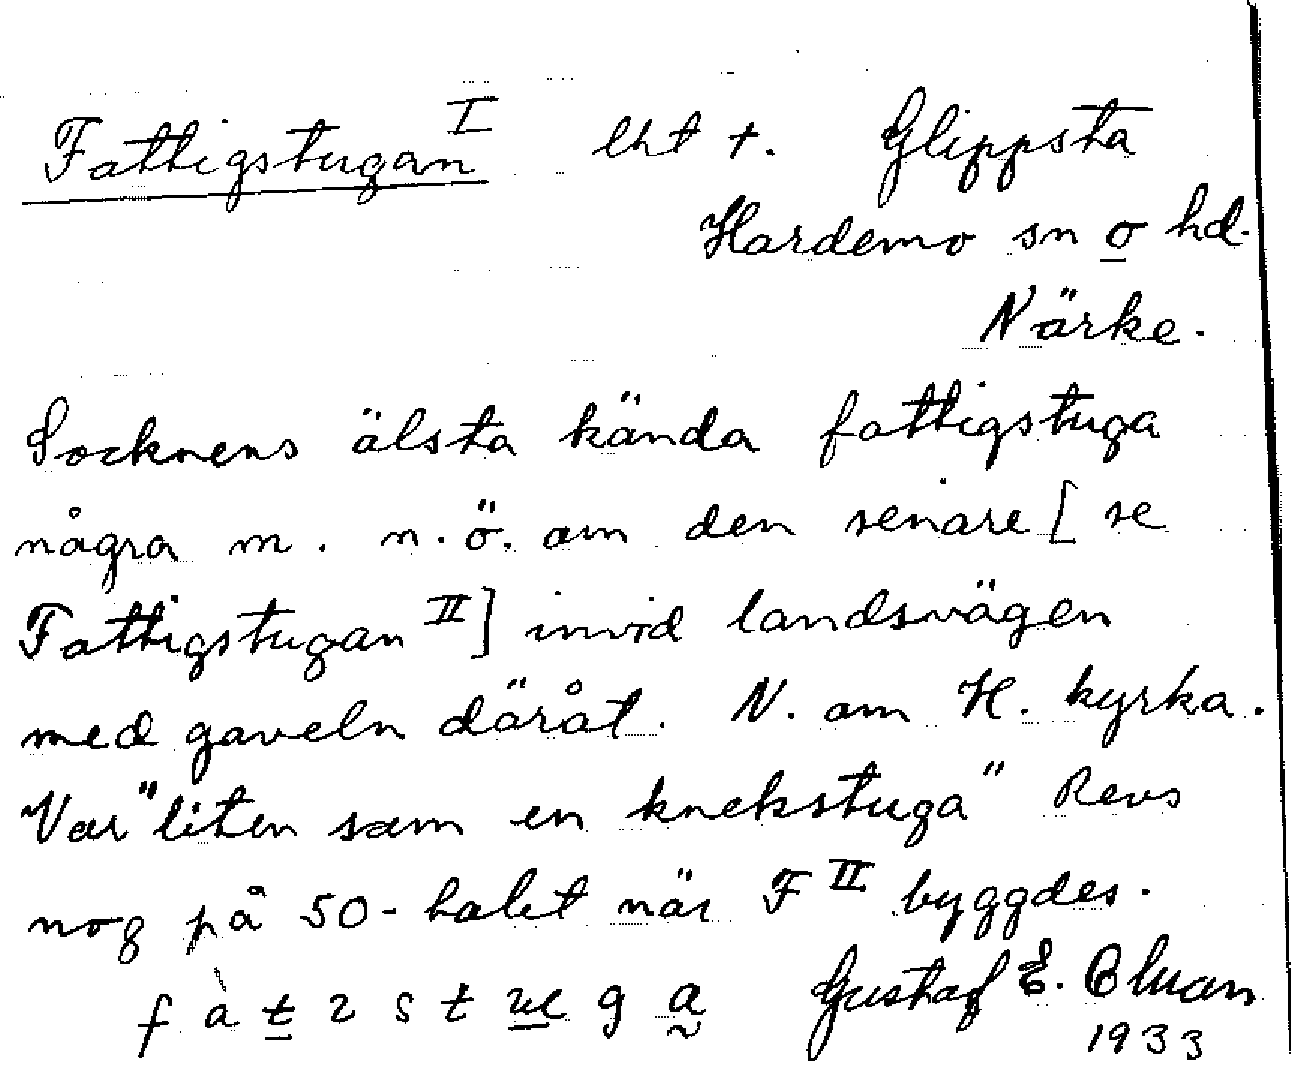 Fattigstugan I lht t. Glippsta
Hardemo sn o hd.
Närke.
Socknens älsta kända fattigstuga
några m. n.ö. om den senare [se
Fattigstugan II] invid landsvägen
med gaveln däråt. N. om H. kyrka.
Var "liten som en knekstuga" Revs
nog på 50-talet när F II byggdes.
f à t 2 s t u g a Gustaf E.
1933